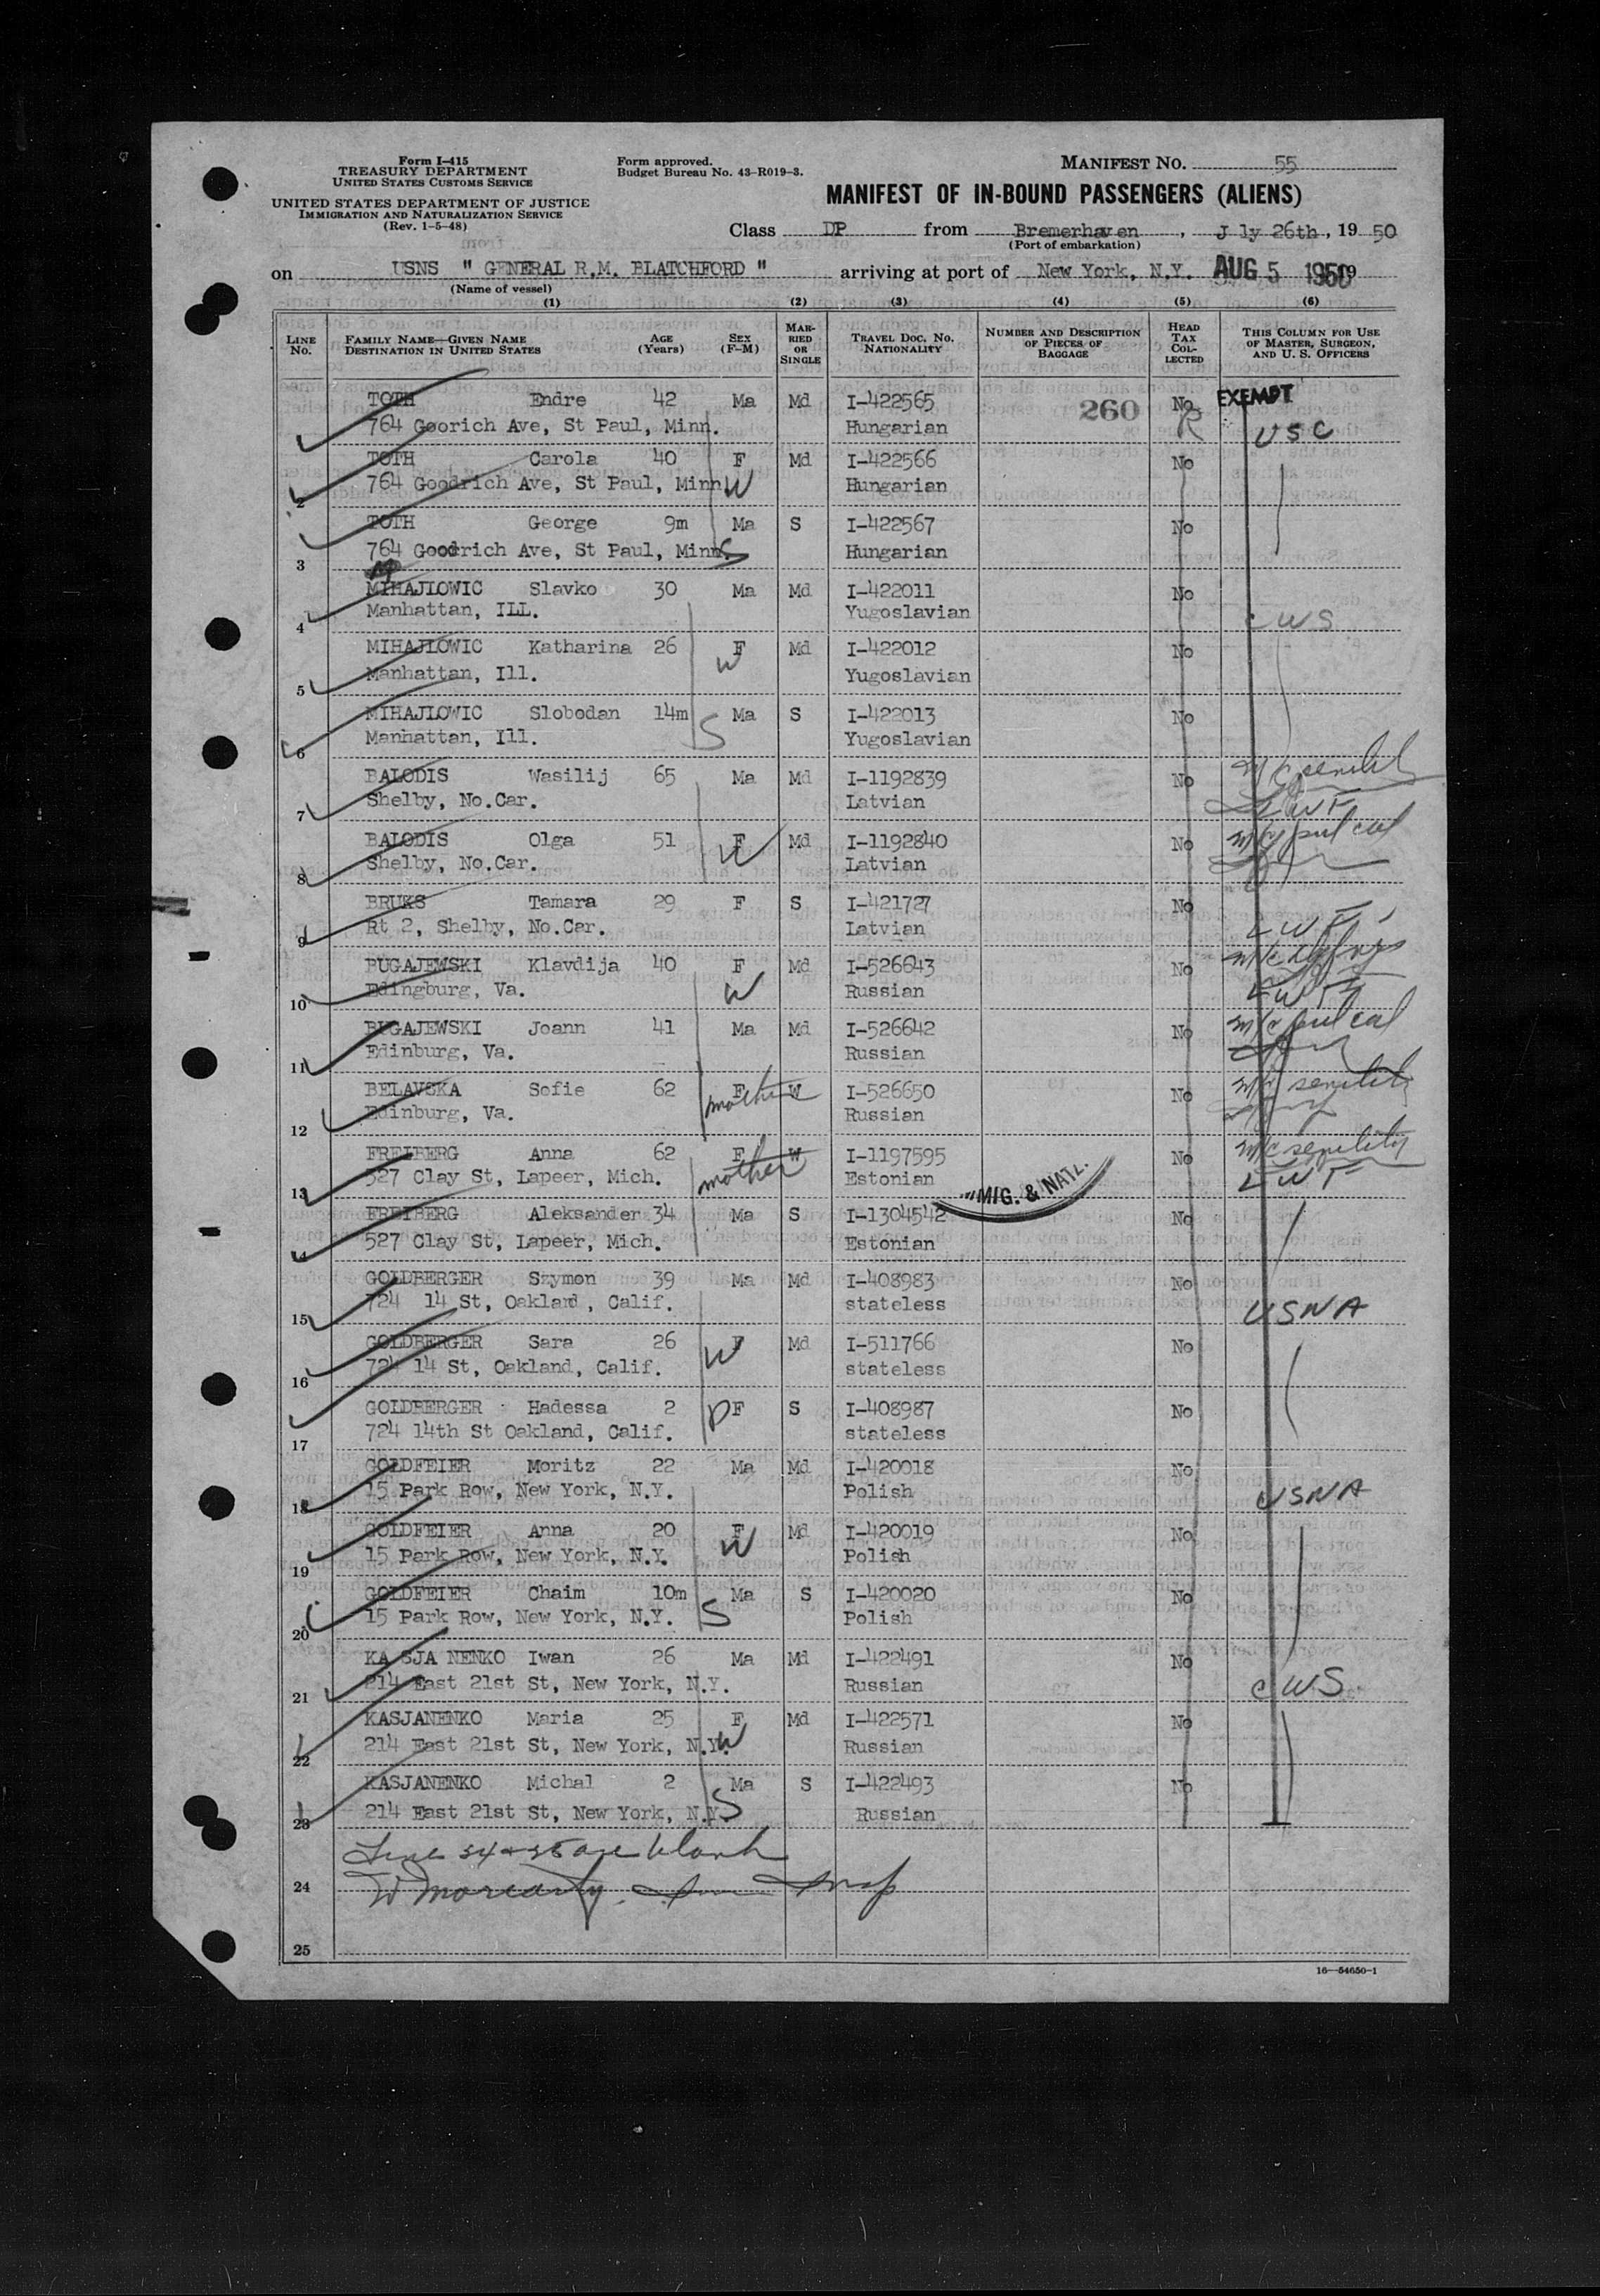 Form I-415
TREASURY DEPARTMENT
UNITED STATES CUSTOMS SERVICE
UNITED STATES DEPARTMENT OF JUSTICE
IMMIGRATION AND NATURALIZATION SERVICE
(Rev. 1-5-48)
Form approved.
Budget Bureau No. 43-R019-3.
MANIFEST NO. 55
MANIFEST OF IN-BOUND PASSENGERS (ALIENS)
Class DP from Bremerhaven, J ly 26th, 19 50
(Port of embarkation)
on USNS " GENERAL R.M. BLATCHFORD " arriving at port of New York, N.Y. AUG 5 1950 19
(Name of vessel)
(1) (2) (3) (4) (5) (6)
LINE NO. FAMILY NAME—GIVEN NAME DESTINATION IN UNITED STATES AGE (Years) SEX (F-M) MARRIED OR SINGLE TRAVEL DOC. NO. NATIONALITY NUMBER AND DESCRIPTION OF PIECES OF BAGGAGE HEAD TAX COLLECTED THIS COLUMN FOR USE OF MASTER, SURGEON, AND U. S. OFFICERS
TOTH Endre 42 Ma Md I-422565 260 No EXEMPT
764 Goorich Ave, St Paul, Minn. Hungarian R USC
TOTH Carola 40 F Md I-422566 No
2 764 Goodrich Ave, St Paul, Minn W Hungarian
TOTH George 9m Ma S I-422567 No
3 764 Goodrich Ave, St Paul, Minn. S Hungarian
MIHAJLOWIC Slavko 30 Ma Md I-422011 No
4 Manhattan, ILL. Yugoslavian CWS
MIHAJLOWIC Katharina 26 F Md I-422012 No
5 Manhattan, Ill. W Yugoslavian
MIHAJLOWIC Slobodan 14m Ma S I-422013 No
6 Manhattan, Ill. S Yugoslavian
BALODIS Wasilij 65 Ma Md I-1192839 No m/c senility
7 Shelby, No.Car. Latvian LWF
BALODIS Olga 51 F Md I-1192840 No m/c pul cal
8 Shelby, No.Car. W Latvian
BRUKS Tamara 29 F S I-421727 No
9 Rt 2, Shelby, No.Car. Latvian LWF
BUGAJEWSKI Klavdija 40 F Md I-526643 No m/c
10 Edingburg, Va. W Russian LWF
BUGAJEWSKI Joann 41 Ma Md I-526642 No m/c pul cal
11 Edinburg, Va. Russian
BELAVSKA Sofie 62 F W I-526650 No m/c senility
12 Edinburg, Va. mother Russian
FREIBERG Anna 62 F W I-1197595 No m/c senility
13 527 Clay St, Lapeer, Mich. mother Estonian LWF
MIG. & NATZ.
FREIBERG Aleksander 34 Ma S I-1304542 No
14 527 Clay St, Lapeer, Mich. Estonian
GOLDBERGER Szymon 39 Ma Md I-408983 No
15 724 14 St, Oakland, Calif. stateless USNA
GOLDBERGER Sara 26 F Md I-511766 No
16 724 14 St, Oakland, Calif. W stateless
GOLDBERGER Hadessa 2 D F S I-408987 No
17 724 14th St Oakland, Calif. stateless
GOLDFEIER Moritz 22 Ma Md I-420018 No
18 15 Park Row, New York, N.Y. Polish USNA
GOLDFEIER Anna 20 F Md I-420019 No
19 15 Park Row, New York, N.Y. W Polish
GOLDFEIER Chaim 10m Ma S I-420020 No
20 15 Park Row, New York, N.Y. S Polish
KA SJA NENKO Iwan 26 Ma Md I-422491 No
21 214 East 21st St, New York, N.Y. Russian CWS
KASJANENKO Maria 25 F Md I-422571 No
22 214 East 21st St, New York, N.Y. W Russian
KASJANENKO Michal 2 Ma S I-422493 No
23 214 East 21st St, New York, N.Y. S Russian
Line 24 & 25 are blank
24 W Moriarty
25
16—54650-1